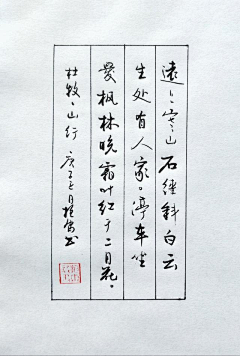 遠上寒山石徑斜白云
生处有人家。停车坐
愛枫林晚霜叶红于二月花。
杜牧、山行 庚子七月书